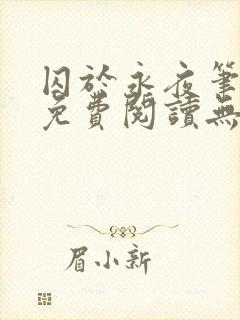 囚於永夜筆
免費閱讀無
眉小新